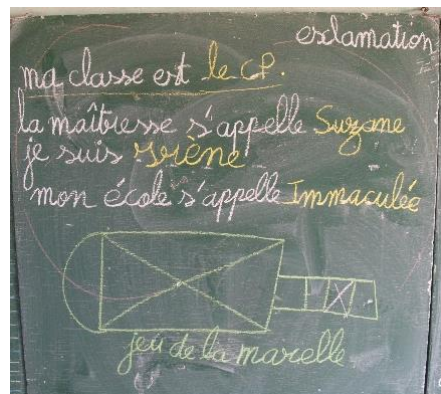 esclamation
ma classe est le CP.
la maîtresse s'appelle Suzane
je suis Irène
mon école s'appelle Immaculée
jeu de la marelle